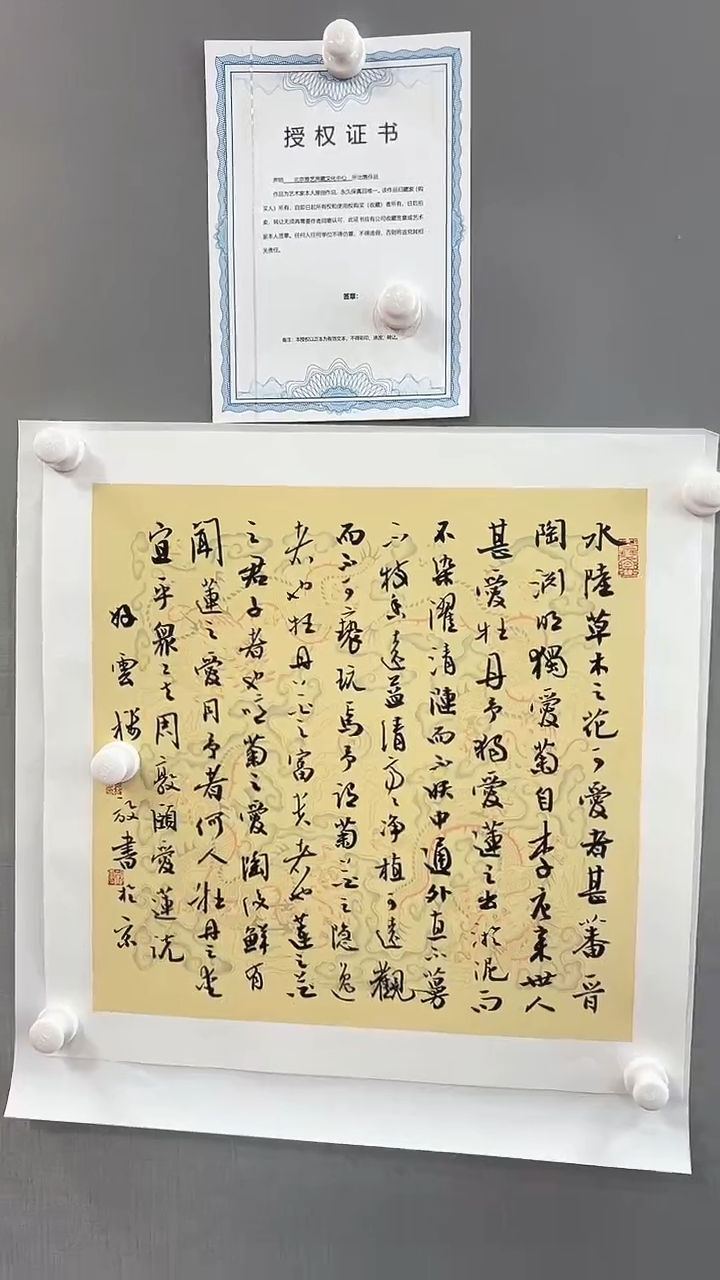 授权证书
声明：北京雅艺典藏文化中心 所出售作品
作品为艺术家本人原创作品，永久保真且唯一。该作品归藏家（购
买人）所有，自即日起所有权和使用权购买（收藏）者所有，日后拍
卖、转让无须再需要作者同意认可，此证书应有公司收藏签章或艺术
家本人签章。任何人任何单位不得仿冒，不得造假，否则将追究其相
关责任。
签章：
备注：本授权以正本为有效文本，不得彩印、涂改、转让。
水陸草木之花可愛者甚蕃晋
陶渕明獨愛菊自李唐来世人
甚愛牡丹予獨愛蓮之出淤泥而
不染濯清漣而不妖中通外直不蔓
不枝香遠益清亭々净植可遠觀
而不可亵玩焉予謂菊花之隐逸
者也牡丹花之富贵者也蓮之花
之君子者也噫菊之愛陶後鮮有
闻蓮之愛同予者何人牡丹之愛
宜乎衆之矣周敦頤愛蓮説
好雲樓 啟書於京